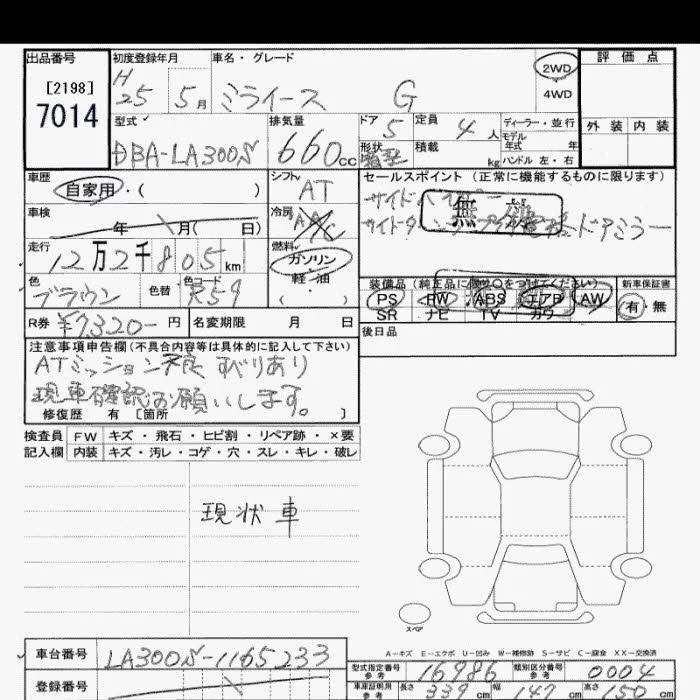 出品番号 初度登録年月 車名・グレード 2WD 評価点
[2198] H 4WD
7014 25 5月 ミライース G
型式 排気量 ドア 5 定員 4人 ディーラー・並行 外装 内装
モデル年式 年
DBA-LA300S 660cc 形状 積載 kg ハンドル 左・右
車歴 シフト セールスポイント(正常に機能するものに限ります)
自家用・( ) AT
車検 冷房 無
年 月( 日) ドアミラー
走行 燃料
12万2千805km ガソリン
色 色替 色コード 軽・油 装備品(純正品に限り○をつけてください) 新車保証書
ブラウン R59 ( ) PS PW ABS エアB AW 有・無
SR ナビ TV カワ
R券 ¥7320-円 名変期限 月 日 後日品
注意事項申告欄(不具合内容等は具体的に記入して下さい)
ATミッション不良 すべりあり
現車確認お願いします。
修復歴 有 [箇所 ]
検査員 FW キズ・飛石・ヒビ割・リペア跡・×要
記入欄 内装 キズ・汚レ・コゲ・穴・スレ・キレ・破レ
現状車
スペア
A-キズ E-エクボ U-凹み W-補修跡 S-サビ C-腐食 XX-交換済
車台番号 LA300S-1165233 型式指定番号 参考 16986 類別区分番号 参考 0004
登録番号 車庫証明用 参考 長さ 339cm 幅 147cm 高さ 150cm